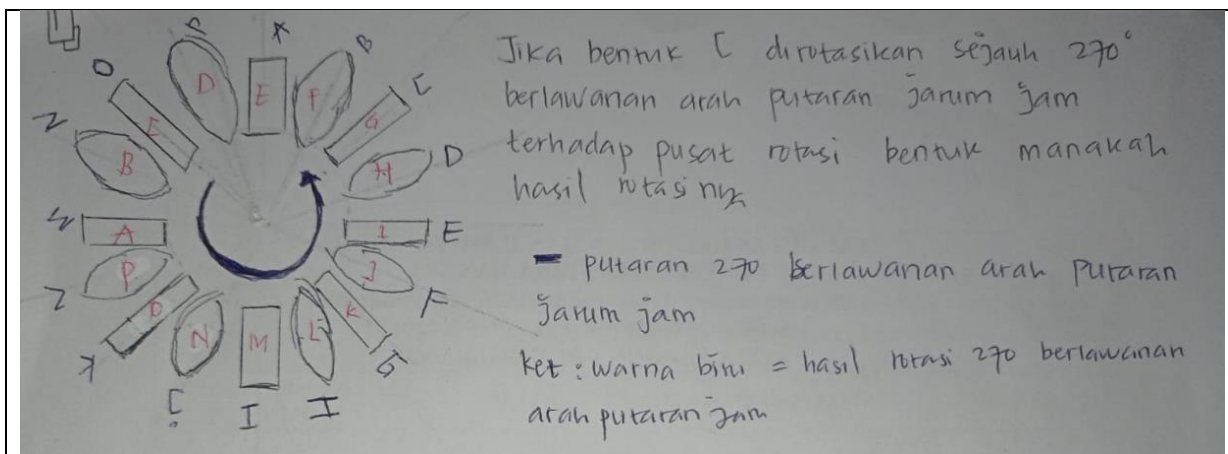 A
B
C
D
E
F
G
H
I
J
K
Z
N
O
P
D E F
C G
B H
A I
P J
O K
N M L
Jika bentuk C dirotasikan sejauh 270°
berlawanan arah putaran jarum jam
terhadap pusat rotasi bentuk manakah
hasil rotasi nya
- putaran 270 berlawanan arah putaran
jarum jam
ket : warna biru = hasil rotasi 270 berlawanan
arah putaran jam